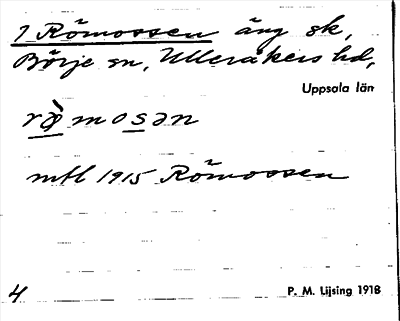 1 Römossen äng sk,
Börje sn, Ulleråkers hd,
Uppsala län
rø̀mosən
mtl 1915 Römossen
4
P. M. Lijsing 1918